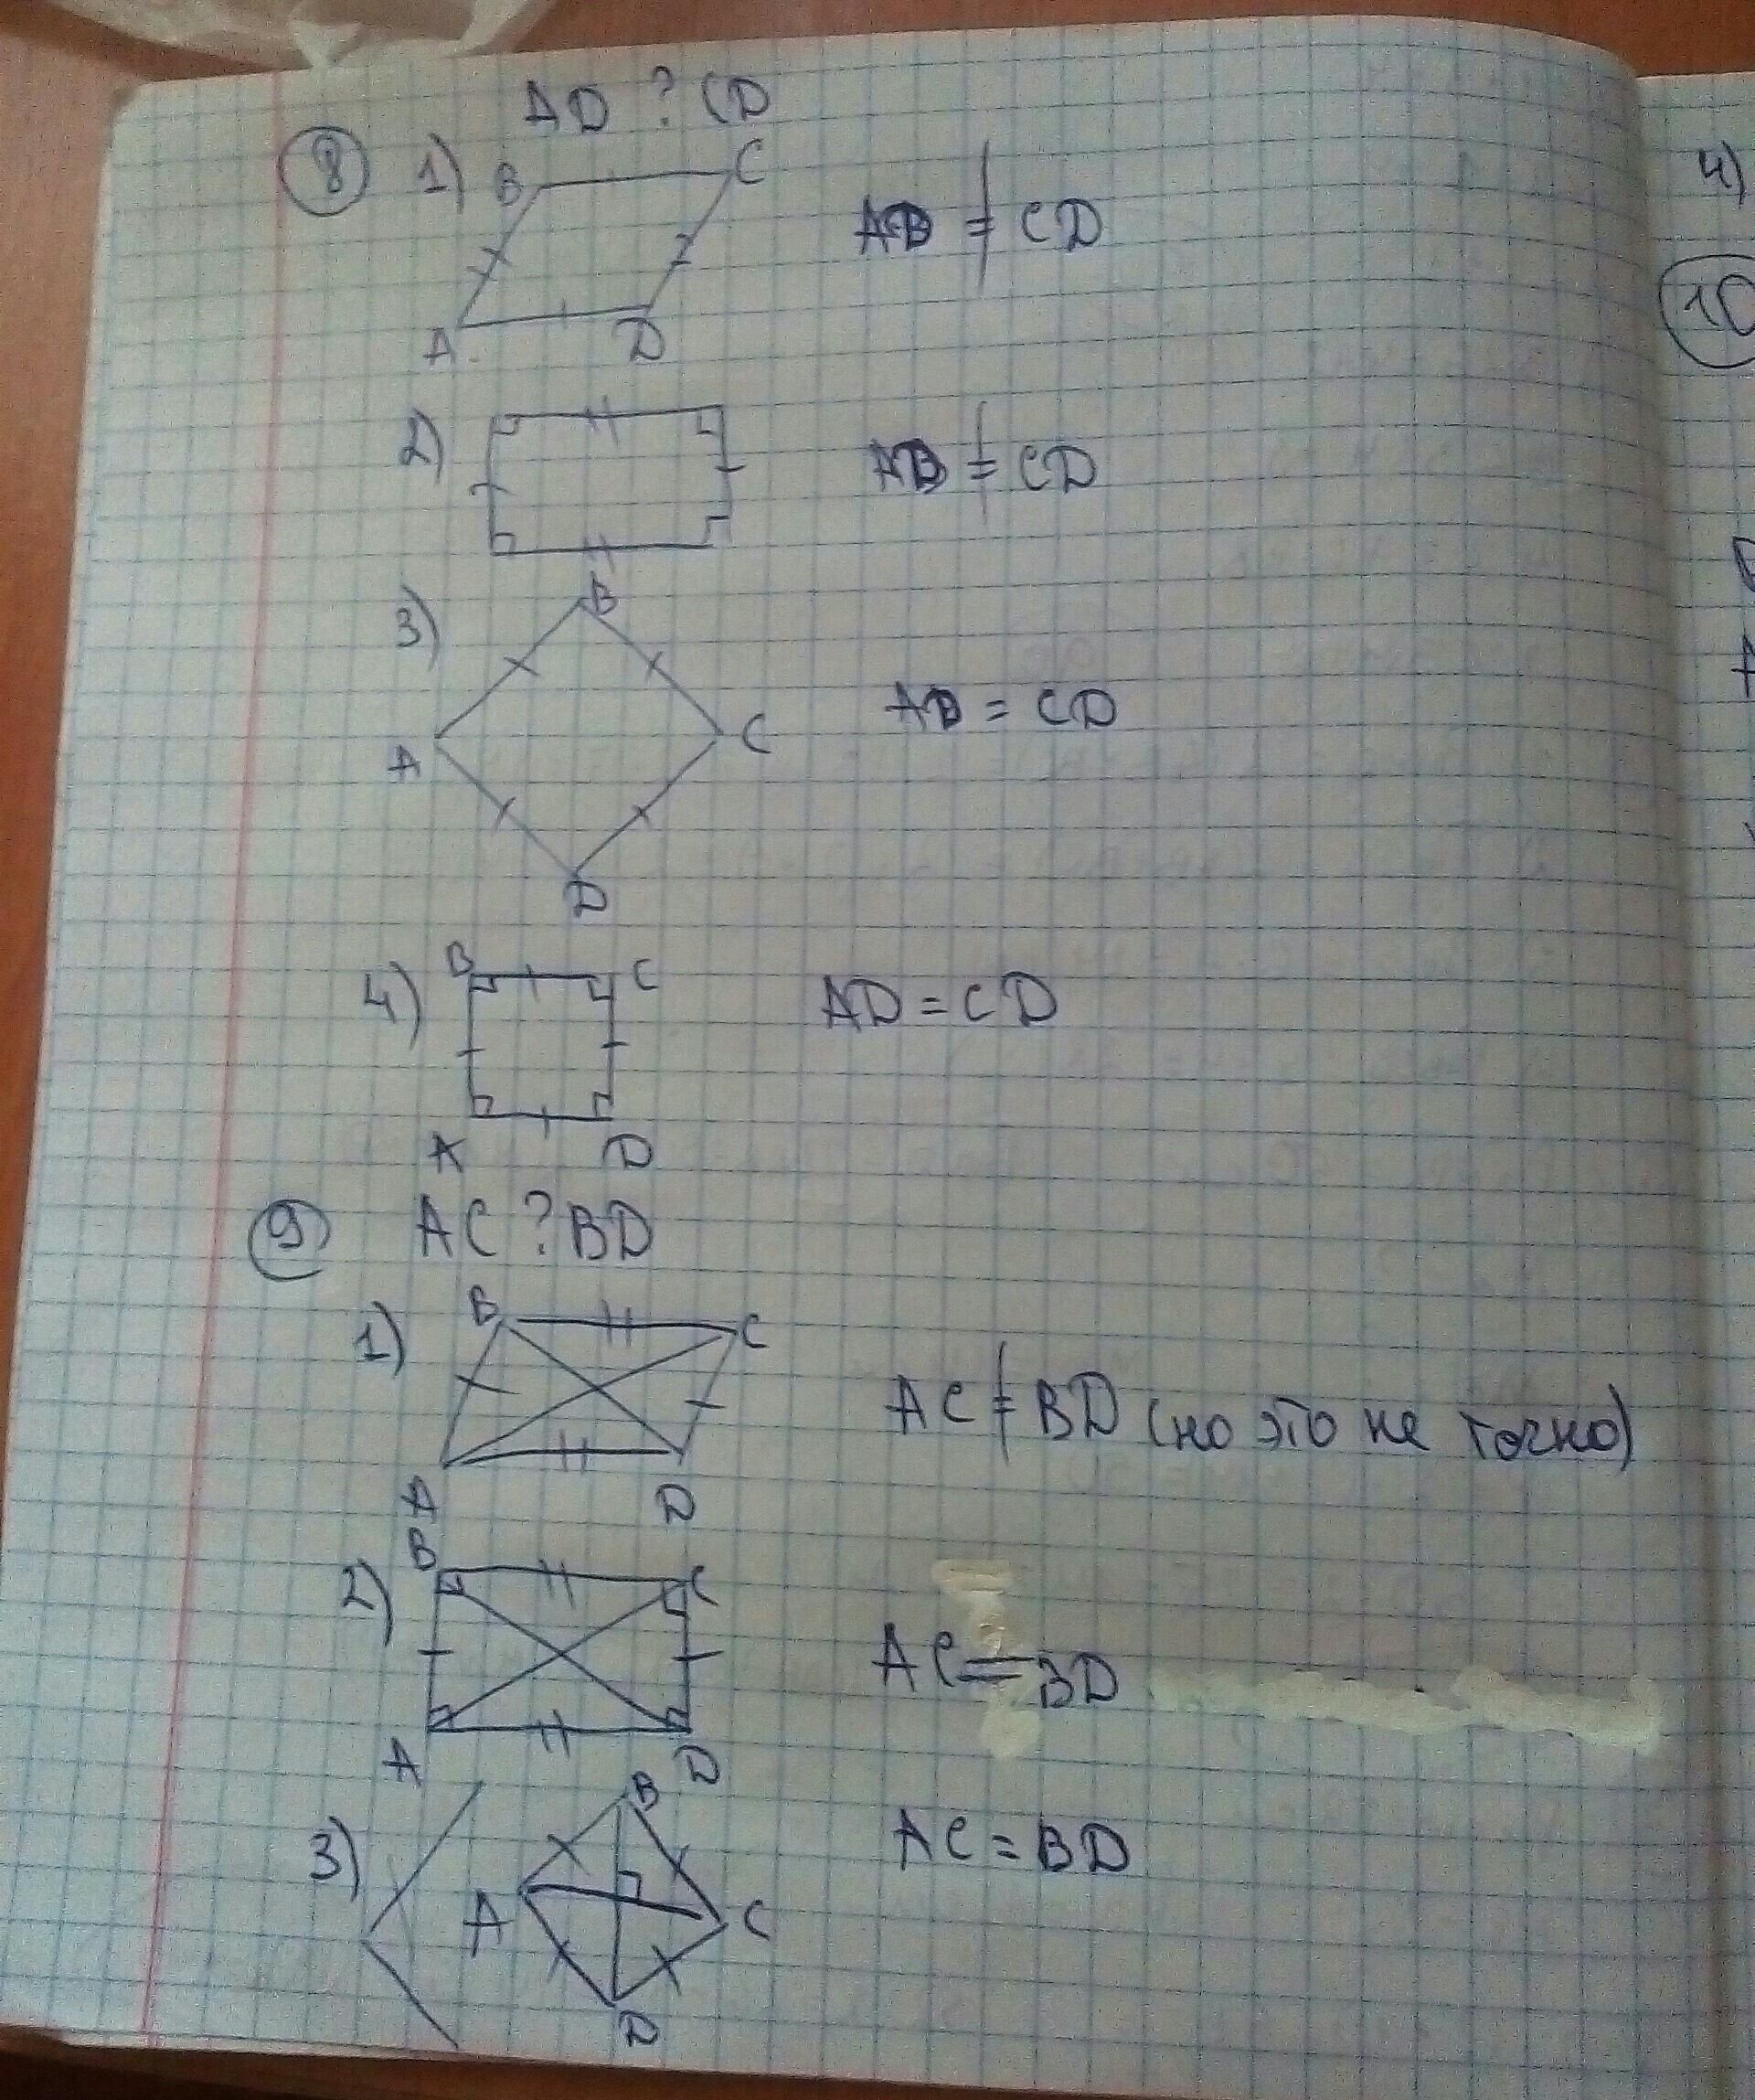 AD ? CD
8 1) B C
AD ≠ CD
A D
2) AD ≠ CD
3) B
A C
AD = CD
D
4) B C
AD = CD
A D
9 AC ? BD
1) B C
AC ≠ BD (но это не точно)
A D
2) B C
AC = BD
A D
3) B
AC = BD
A C
D
4)
10